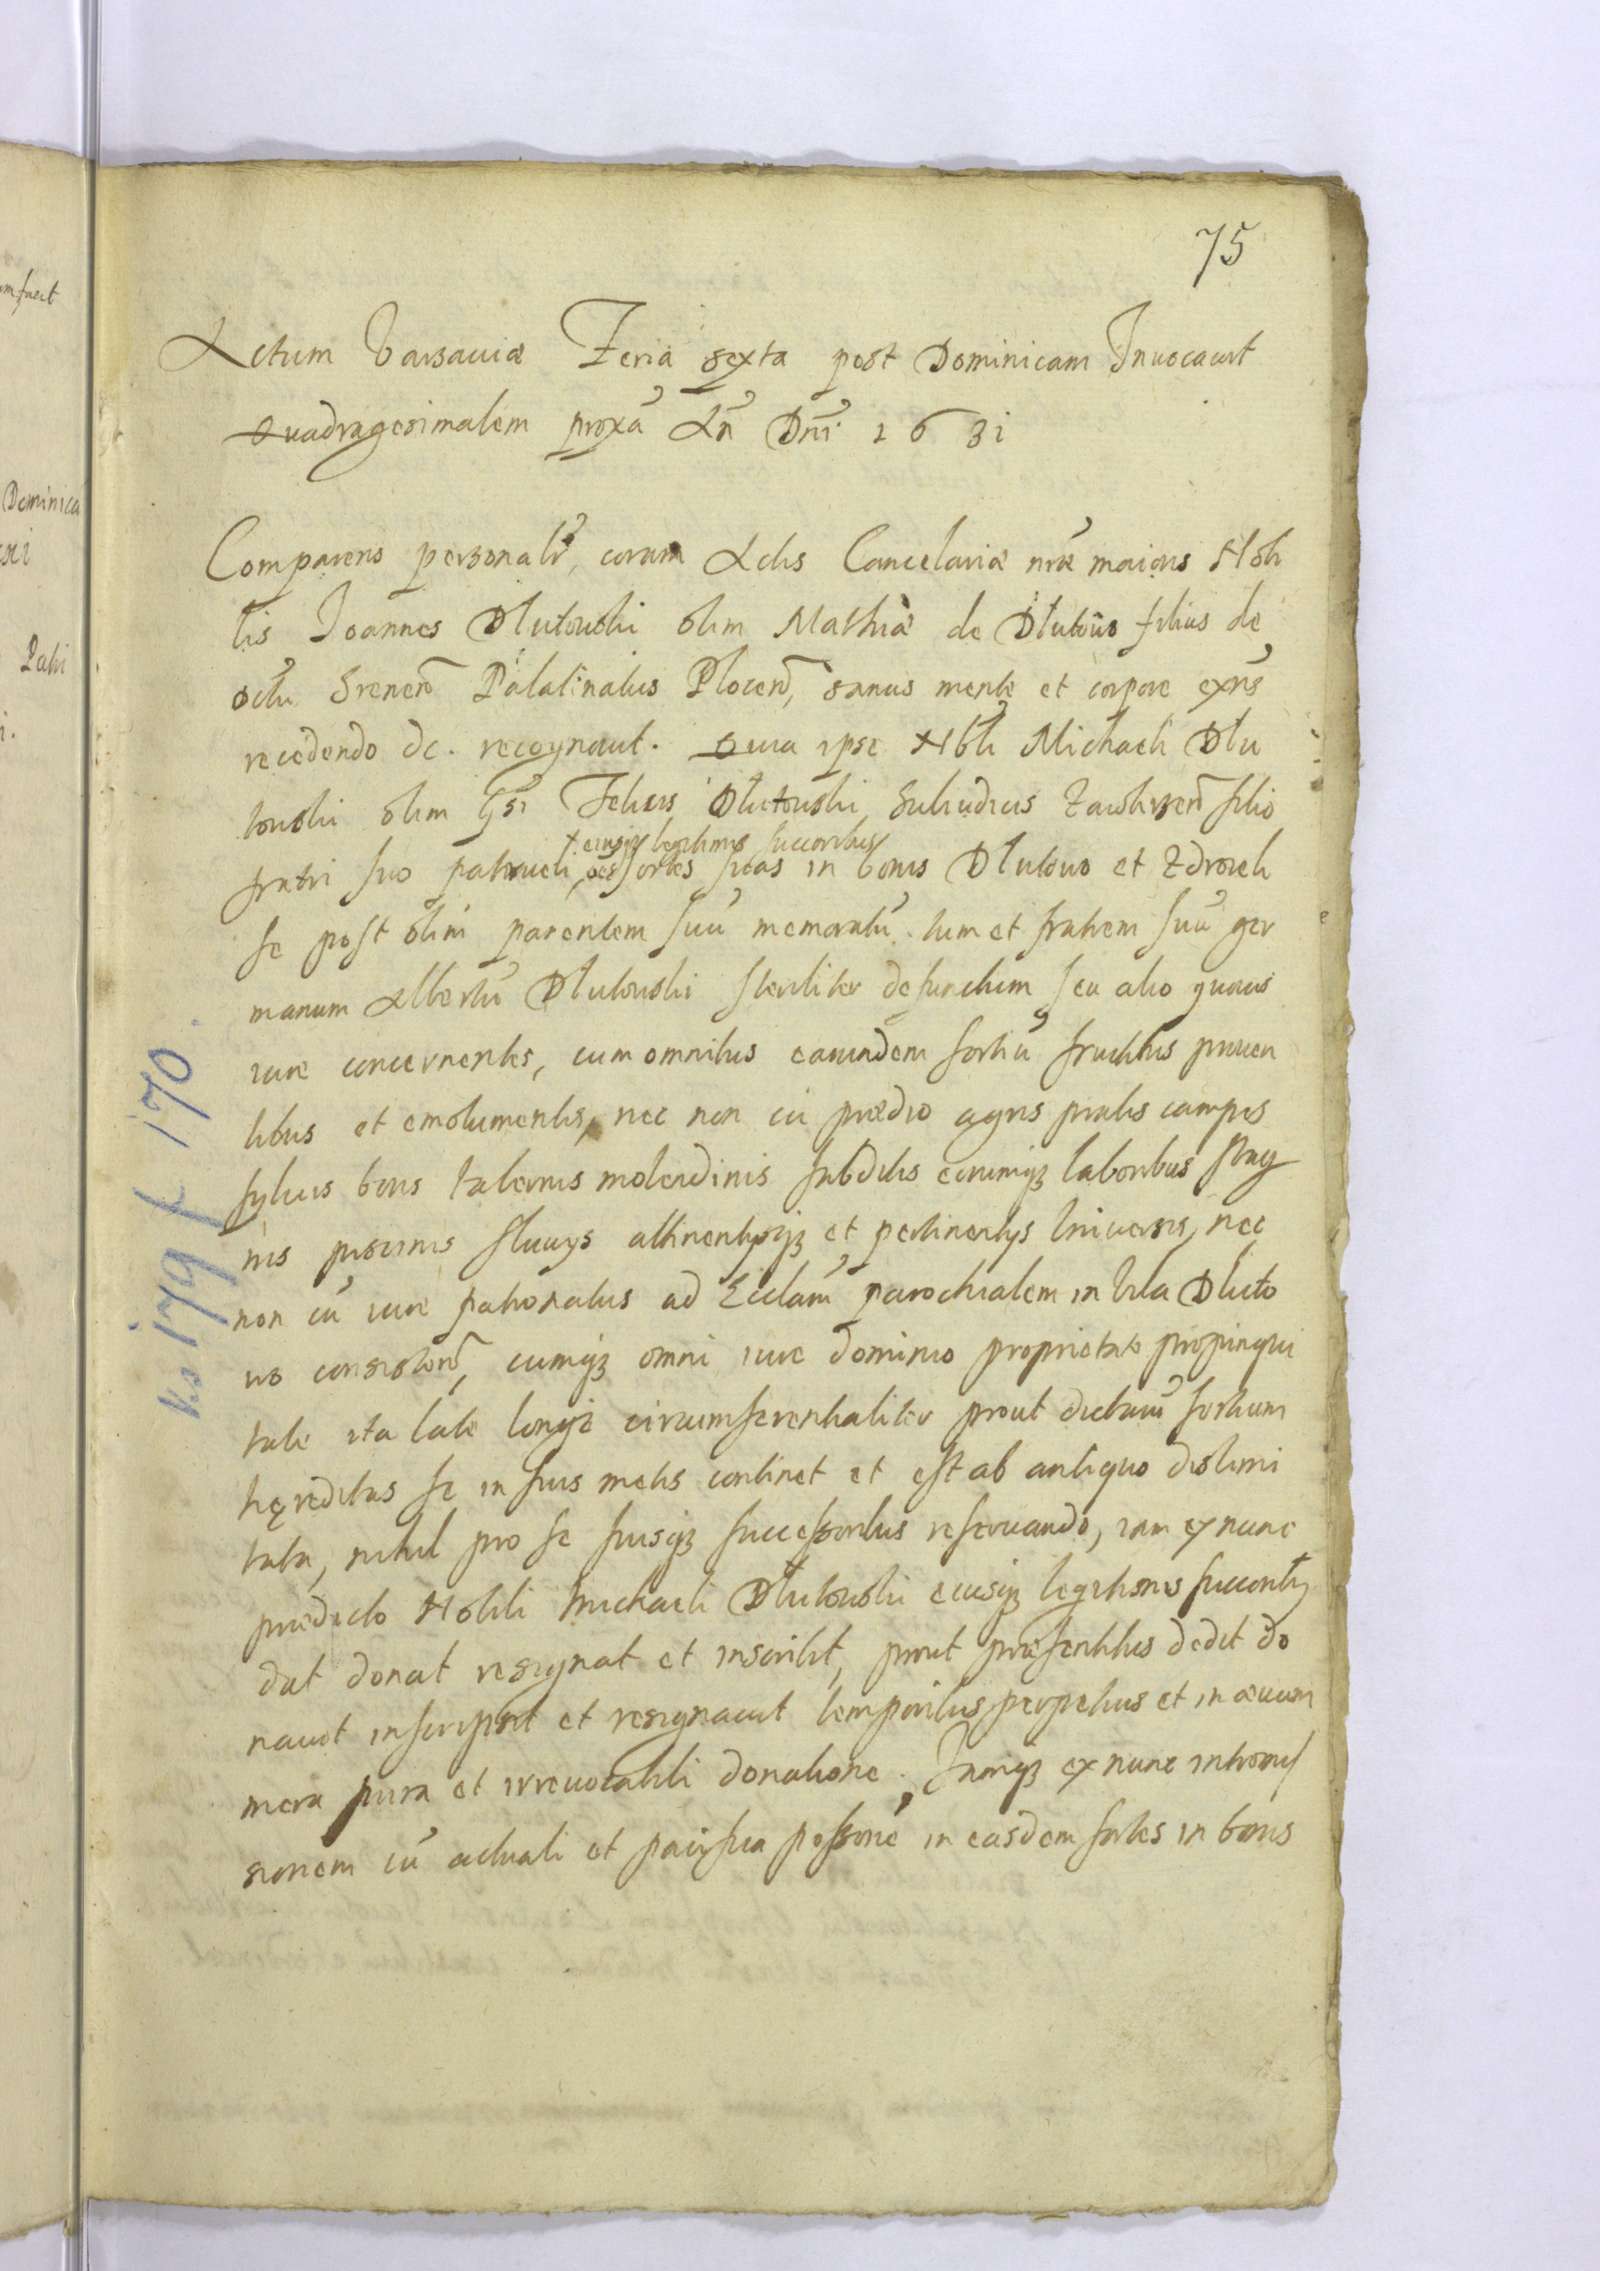 75
Actum Varsauiæ Feria sexta post Dominicam Inuocauit
Quadragesimalem proxã Añ Dñi 1631
Comparens personalr̃, coram Actis Cancelariæ nr̃æ maioris Nobi
lis Joannes Dlutowski olim Mathiæ de Dlutowo filius de
Srenen̄ Palatinatus Plocen̄, sanus mente et corpore exñs
recedendo &c. recognouit. Quia ipse Nbli Michaeli Dlu
towski olim Gsi Felicis Dlutowski Subiudicis Zawskrzen̄ filio
+ eiusqȝ legitimis succoribus
fratri suo patrueli, oẽs sortes suas in bonis Dlutowo et Zdroieh
se post olim parentem suũ memoratũ tum et fratrem suũ ger
manum Albertũ Dlutowski steriliter defunctum seu alio quouis
iure concernentes, cum omnibus earundem sortiũ fructibus prouen
tibus et emolumentis, nec non cũ prædio agris pratis campis
syluis boris tabernis molendinis subditis eorumqȝ laboribus stag
nis piscinis fluuys attinentysqȝ et pertinentys Vniuersis, nec
non cũ iure patronatus ad Ecclãm parochialem in Villa Dluto
wo consisten̄, cumqȝ omni iure dominio proprietate propinqui
tate ita late longe circumferentialiter prout dictarũ sortium
hęreditas se in suis metis continet et est ab antiquo dislimi
tata, nihil pro se suisqȝ successoribus reseruando, iam ex nunc
prædicto Nobili Michaeli Dlutowski eiusqȝ legitimis succoribȝ
dat donat resignat et inscribit, prout præsentibus dedit do
nauit inscripsit et resignauit temporibus perpetuis et in æuum
mera pura et irreuocabili donatione. Jamqȝ ex nunc intromis
sionem cũ actuali et pacifica possone in easdem sortes in bonis
Ks 179 f 170.